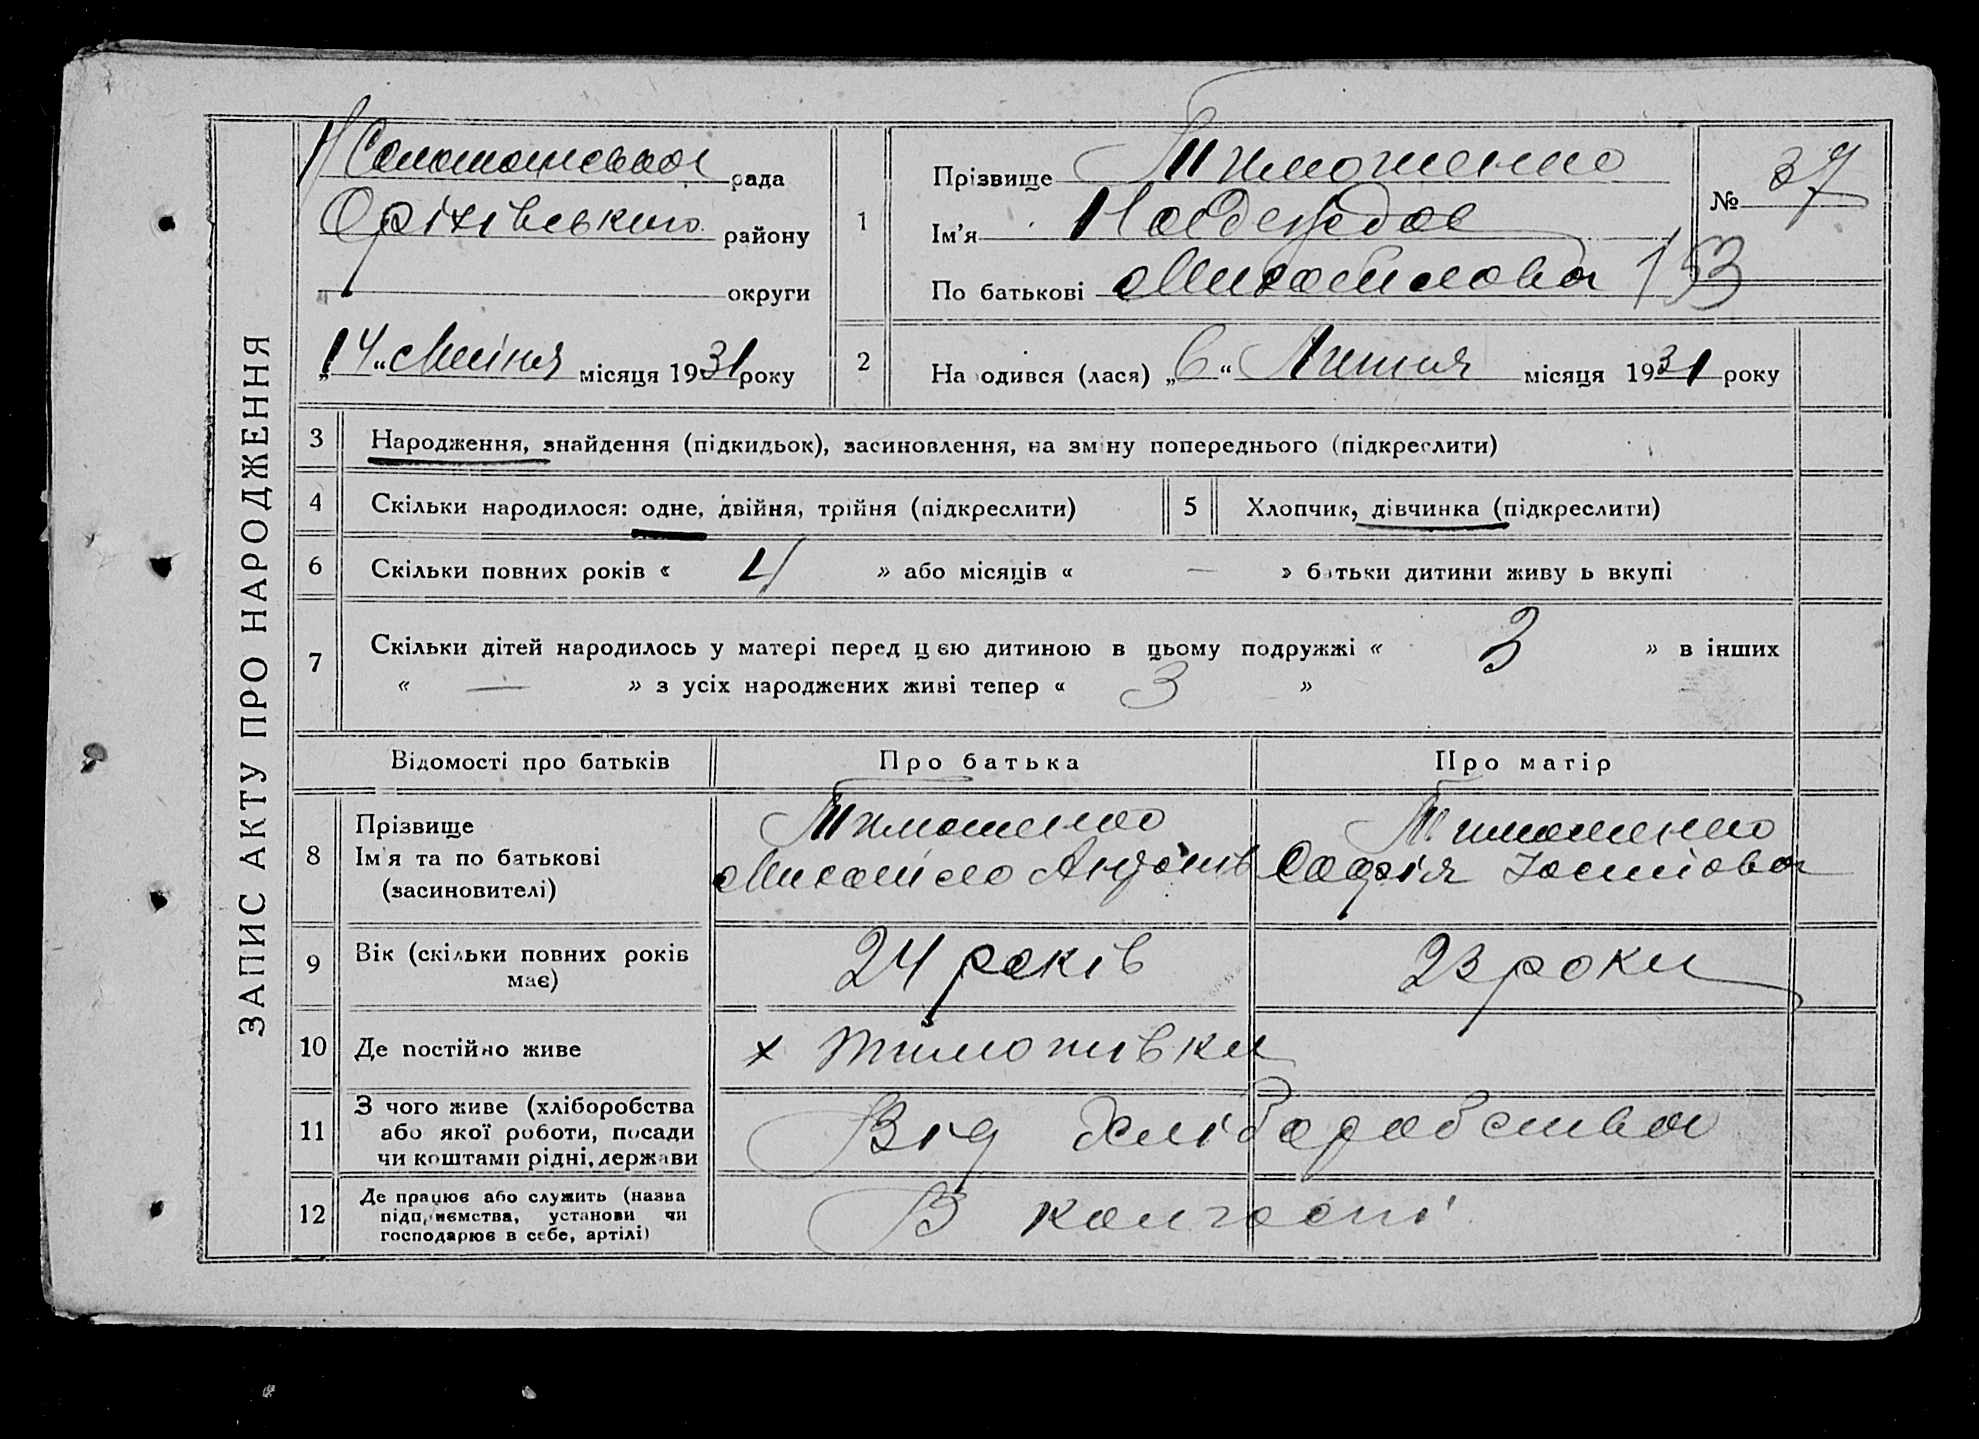 ЗАПИС АКТУ ПРО НАРОДЖЕННЯ
рада
Оріхівського району
округи
„14“ Липня місяця 1931 року
1
Прізвище Тимошенко
Ім'я Надежда
По батькові Михайловна
№ 37
153
2
На одився (лася) „6“ Липня місяця 1931 року
3 Народження, знайдення (підкидьок), засиновлення, на зміну попереднього (підкреслити)
4 Скільки народилося: одне, двійня, трійня (підкреслити)
5 Хлопчик, дівчинка (підкреслити)
6 Скільки повних років « 4 » або місяців « — » батьки дитини живу ь вкупі
7 Скільки дітей народилось у матері перед цією дитиною в цьому подружжі « 3 » в інших
« — » з усіх народжених живі тепер « 3 »
Відомості про батьків Про батька Про матір
8 Прізвище
Ім'я та по батькові
(засиновителі)
Тимошенко
Михайло Антонів
Тимошенко
Софія Іосипова
9 Вік (скільки повних років
має)
24 років
23 роки
10 Де постійно живе
х Тимошівка
11 З чого живе (хліборобства
або якої роботи, посади
чи коштами рідні, держави
Від хліборобства
12 Де працює або служить (назва
підприємства, установи чи
господарює в себе, артілі)
В колгоспі